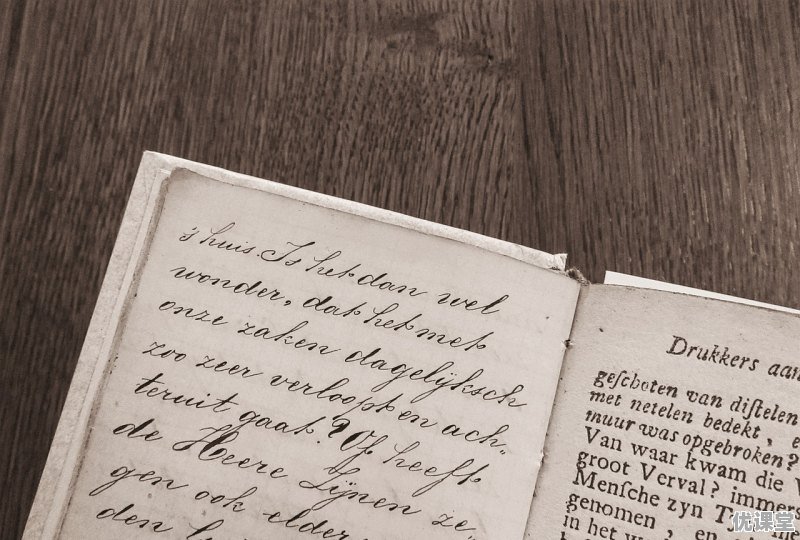 's huis. Is het dan wel
wonder, dat het met
onze zaken dagelijksch
zoo zeer verloopt en ach„
teruit gaat? Of heeft
de Heere Zijnen ze„
gen ook elder
den
Drukkers aan
geſchoten van diſtelen
met netelen bedekt, e
muur was opgebroken?
Van waar kwam die V
groot Verval? immers
Menſche zyn T
genomen, en
in het w
优课堂